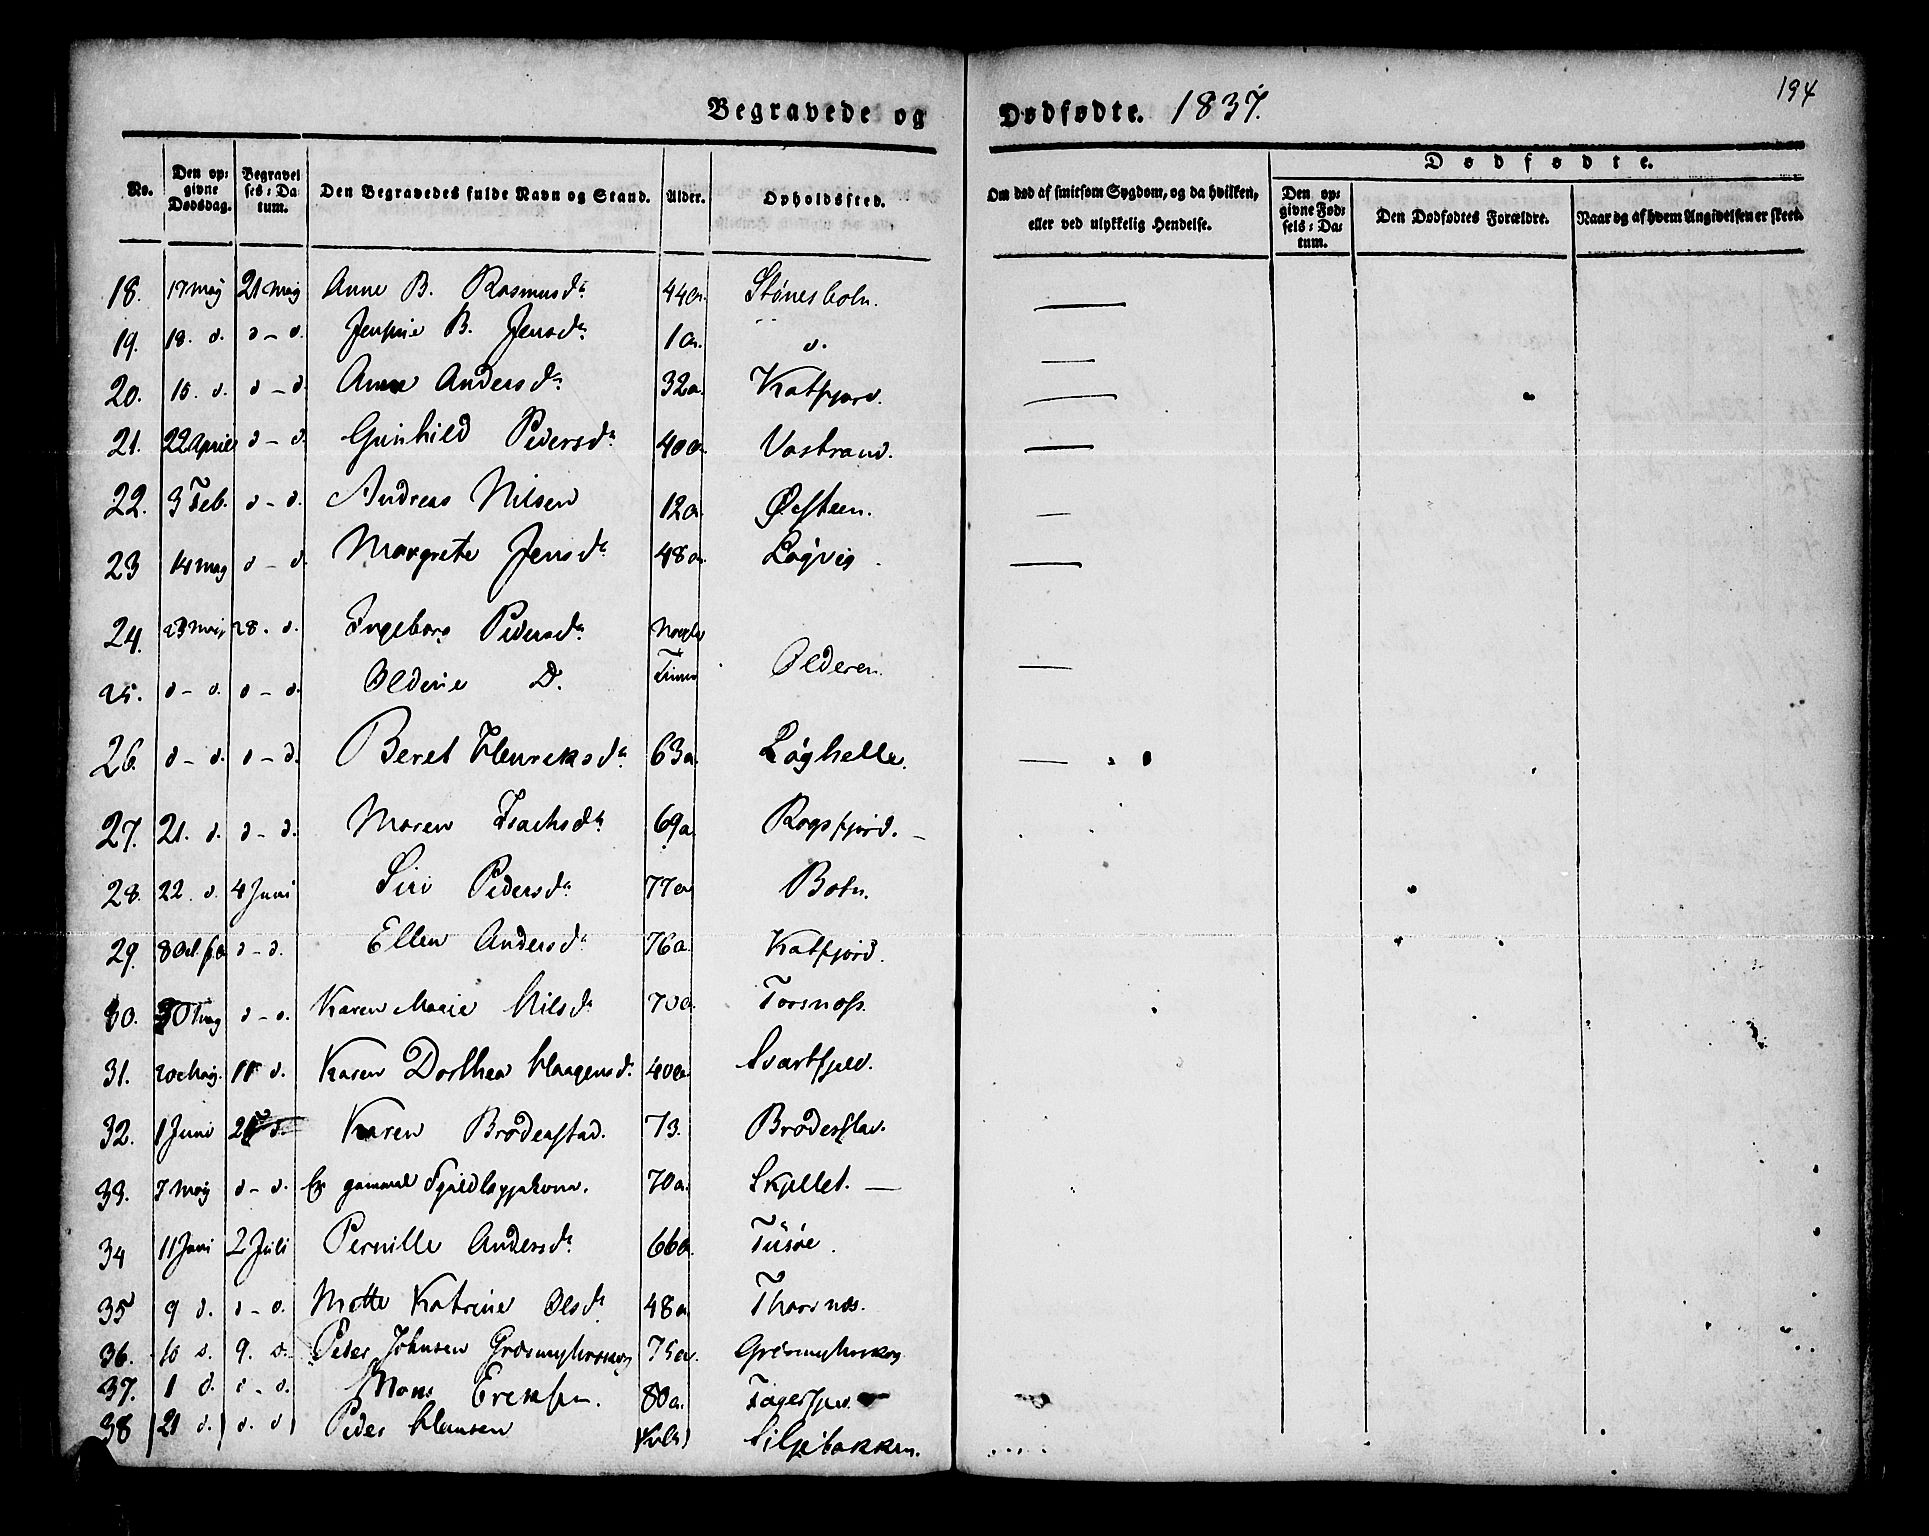 194
Begravede og Dødfødte. 1837.
No. Den opgivne Dødsdag. Begravelses-Datum. Den Begravedes fulde Navn og Stand. Alder. Opholdssted. Om død af smitsom Sygdom, og da hvilken, eller ved ulykkelig Hendelse.
Dødfødte.
Den opgivne Fødsels-Datum. Den Dødfødtes Forældre. Naar og af hvem Angivelsen er skeet.
18. 17 May 21 May Anne B. Rasmusd. 44 a. Stønesbotn.
19. 18. d. d - d. B. Jensd. 1 a. d.
20. 15. d. d - d. Anne Andersd. 32 a. Katfjord.
21. 22 April d - d. Gunhild Pedersd. 40 a. Vastrand.
22. 3 Feb. d - d. Andreas Nilsen 12 a. Øesteen.
23 14 May d - d. Margrete Jensd. 48 a. Løgvig.
24. 23 May 28. d. Ingeborg Pedersd.
25. d - d. d - d. Olderie D. Olderen.
26. d - d. d - d. Beret Henriksd. 63 a. Løghelle.
27. 21. d. d - d. Maren Isachsd. 69 a. Rogsfjord.
28. 22. d. 4 Juni Siri Pedersd. 77 a. Botn.
29. 8 Oct. d - d. Ellen Andersd. 76 a. Katfjord.
30. d - d. Karen Marie Nilsd. 70 a. Torsnoss.
31. 20 May. 11 d. Karen Dorthea Haagensd. 40 a. Svartfjeld.
32. 1 Juni d. Karen Brodenstad. 73.
33. 7 May d - d. En gammel 70 a. Skjellet.
34 11 Juni 2 Juli Pernille Andersd. 66 a. Tüsøe.
35 9 d. d - d. Mette Katrine Olsd. 48 a. Thorsnæs.
36. 10 d. 9. d. Peder Johnsen 75 a.
37. 1 d. d - d. Mons Eriksen. 80 a.
38 21 d. d. d Peder Hansen Siljebakken.